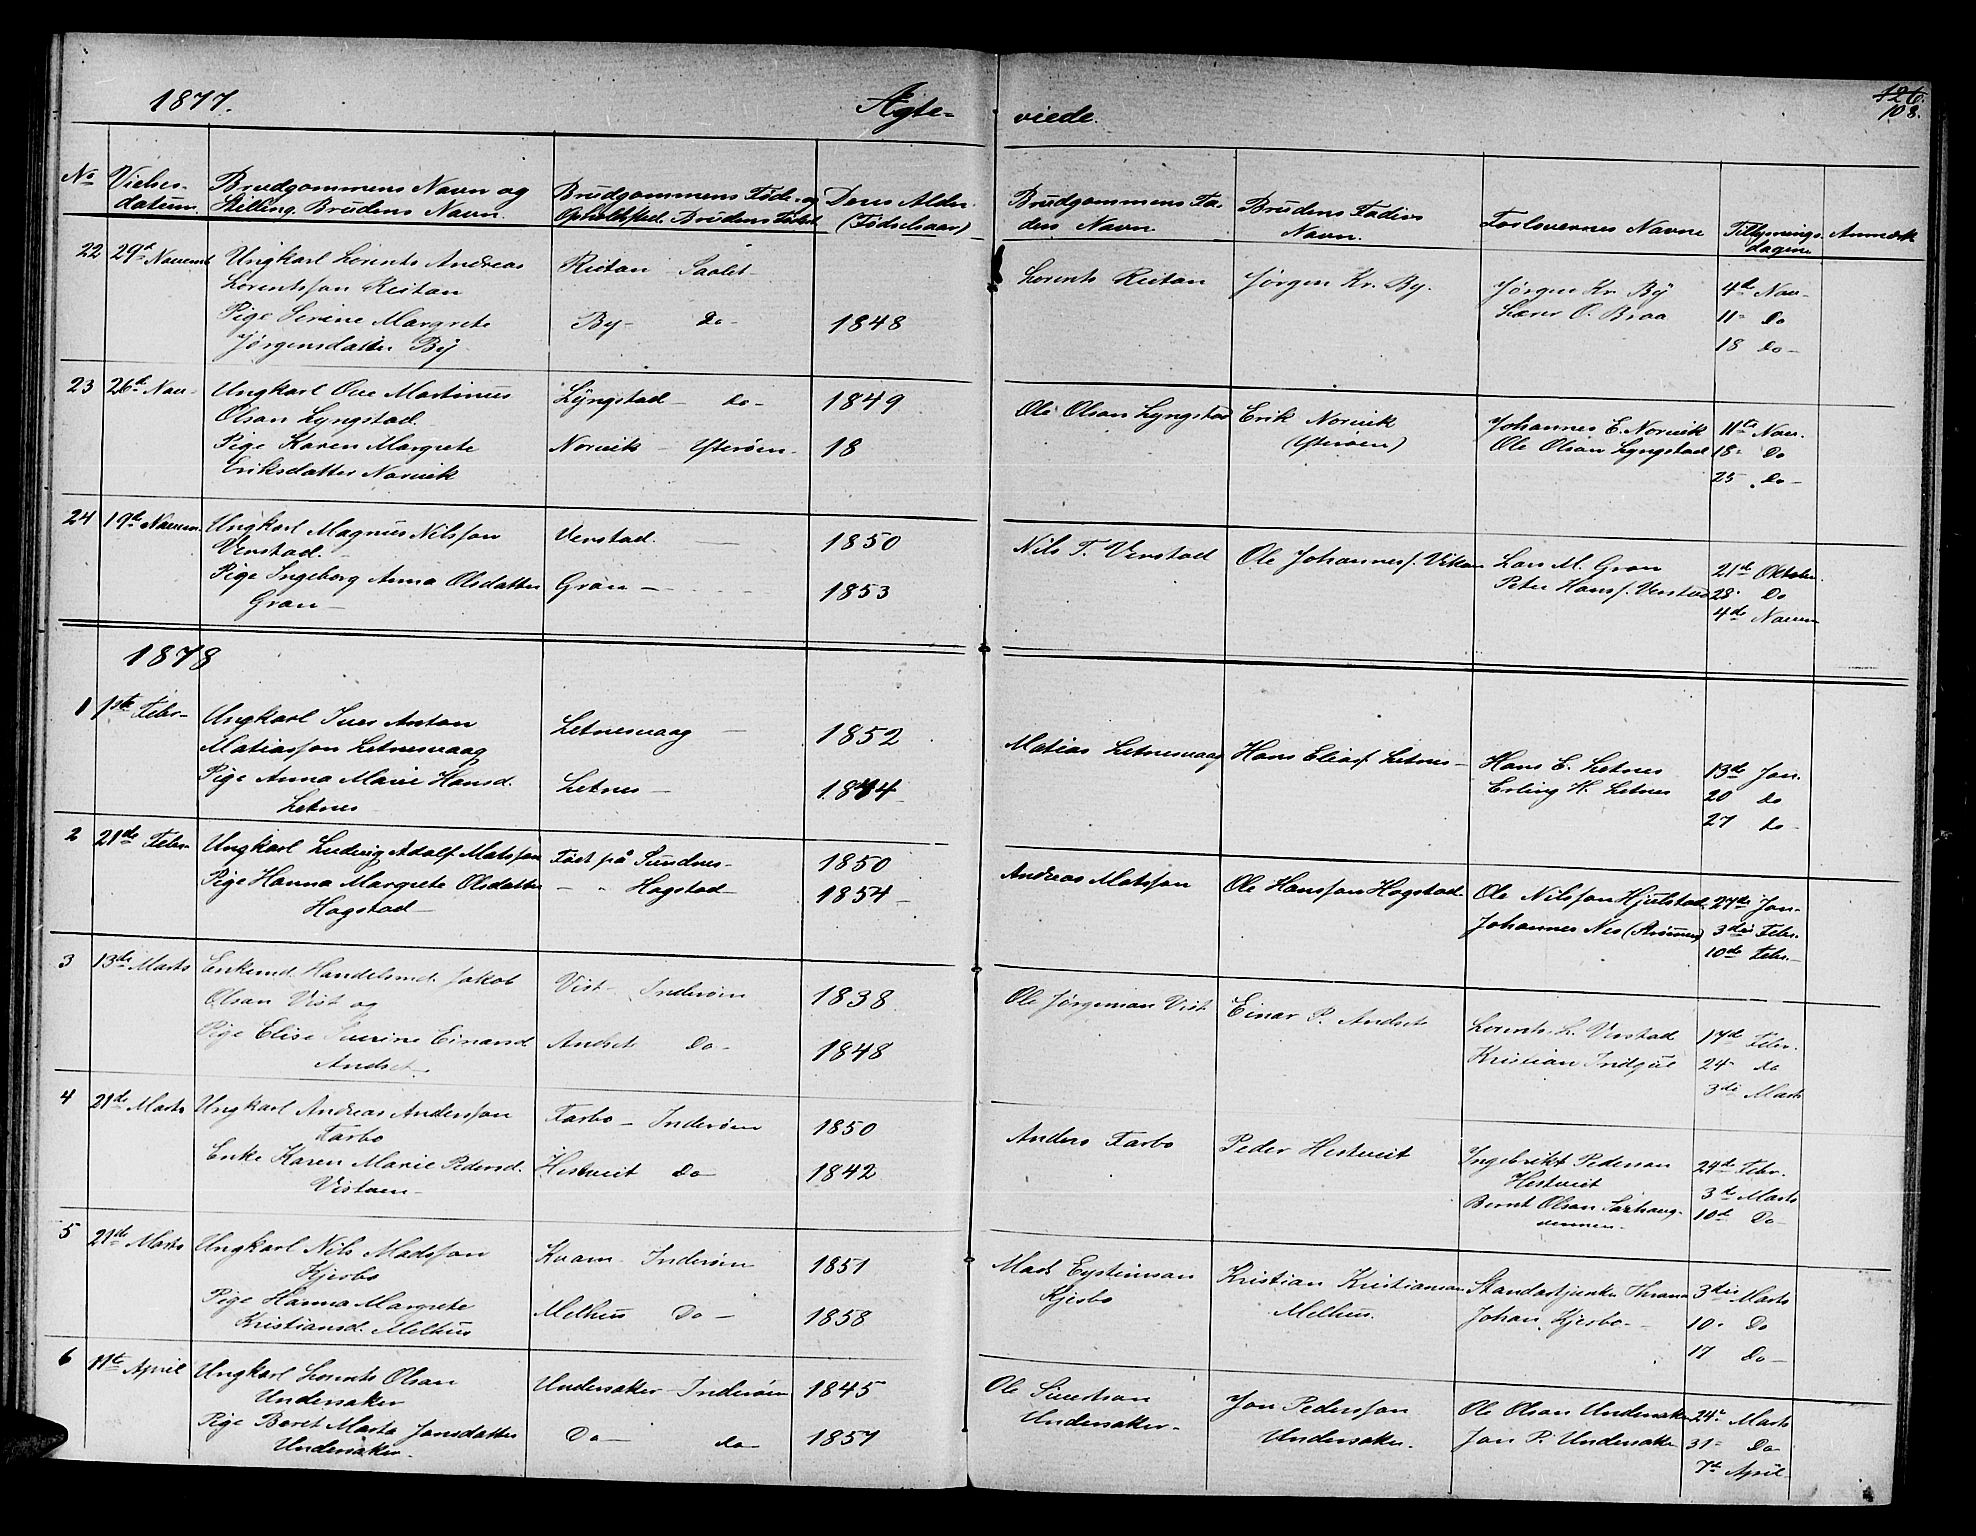 1877.
Ægte-
viede.
126.
108.
No
Vielses-
datum.
Brudgommens Navn og
Stilling. Brudens Navn.
Brudgommens Føde- og
Opholdssted. Brudens Fødest.
Deres Alder
(Fødselsaar)
Brudgommens Fa-
ders Navn.
Brudens Faders
Navn.
Forlovernes Navne
Tillysnings-
dagene
Anmærk
22 29de Novemb
Ungkarl Lorents Andreas
Lorentsson Ristan
Pige Serine Margrete
Jørgensdatter By
Ristan Saalst
By- Do-
1848
Lorents Ristan
Jørgen Kr. By.
Jørgen Kr. By
Lærer O. Braa
4de Nov-
11- Do
18 Do-
23 26de Nov-
Ungkarl Ove Martinus
Olsan Lyngstad
Pige Karen Margrete
Eriksdatter Norvik
Lyngstad Do-
Norvik - Ytterøen-
1849
18
Ole Olsan Lyngstad
Erik Norvik
(Ytterøen)
Johannes E. Norvik
Ole Olsan Lyngstad
11te Nov.
18- Do
25 Do-
24 19de Novem
Ungkarl Magnus Nilsson
Verstad.
Pige Ingeborg Anna Olsdatter
Gran-
Verstad.
Gran-
1850
1853
Nils T. Verstad
Ole Johanness. Viktan
Lars M. Gran
Peter Hanss. Verstad
21de Oktober.
28- Do
4de Novem
1878
1 1ste Febr-
Ungkarl Iver Anton
Matiasson Letnesvaag
Pige Anna Marie Hansd.
Letnes
Letnesvaag -
Letnes -
1852
1844
Matias Letnesvaag
Hans Eliass. Letnes-
Hans E. Letnes
Erling H. Letnes
13de Jan.
20 Do
27 Do-
2 21de Febr
Ungkarl Ludvig Adolf Matsson
Pige Hanna Margrete Olsdatter
Hagstad-
Født på Sundnes-
- " Hagstad-
1850
1854-
Andreas Matsson
Ole Hansson Hagstad-
Ole Nilsson Hjulstad
Johannes Nes
27de Jan-
3die Febr.
10de Febr.-
3 13de Marts
Enkemd. Handelsmd. Jakob
Olsan Vist og
Pige Elise Severine Einarsd
Andset.
Vist- Inderøen
Andset Do-
1838
1848
Ole Jørgensan Vist
Einar P. Andset
Lorents L. Verstad
Kristian Indgul
17de Febr.
24- Do
3die Marts
4 21de Marts
Ungkarl Andreas Andersson
Farbo
Enke Karen Marie Pedersd.
Vistven-
Farbo- Inderøen
Hestveit Do-
1850
1842
Anders Farbo
Peder Hestveit
Ingebrikt Pedersan
Hestveit
Bernt Olsan
24de Febr.
3de Marts
10de Do-
5 21de Marts
Ungkarl Nils Madsson
Kjerbo
Pige Hanna Margrete
Kristiansd. Melhus
Kvam- Inderøen
Melhus Do-
1851
1858
Mads Eysteinsan
Kjerbo
Kristian Kristiansan
Melhus.
Johan Kjerbo-
3die Marts
10- Do
17 Do-
6 11te April
Ungkarl Lorents Olsan
Undersaker
Pige Beret Marta Jonsdatter
Undersaker-
Undersaker- Inderøen
Do- Do-
1845
1857
Ole Sivertsan
Undersaker-
Jon Pedersson
Undersaker.
Ole Olsan Undersaker
Jon P. Undersaker
24- Marts
31- Do
7de April-